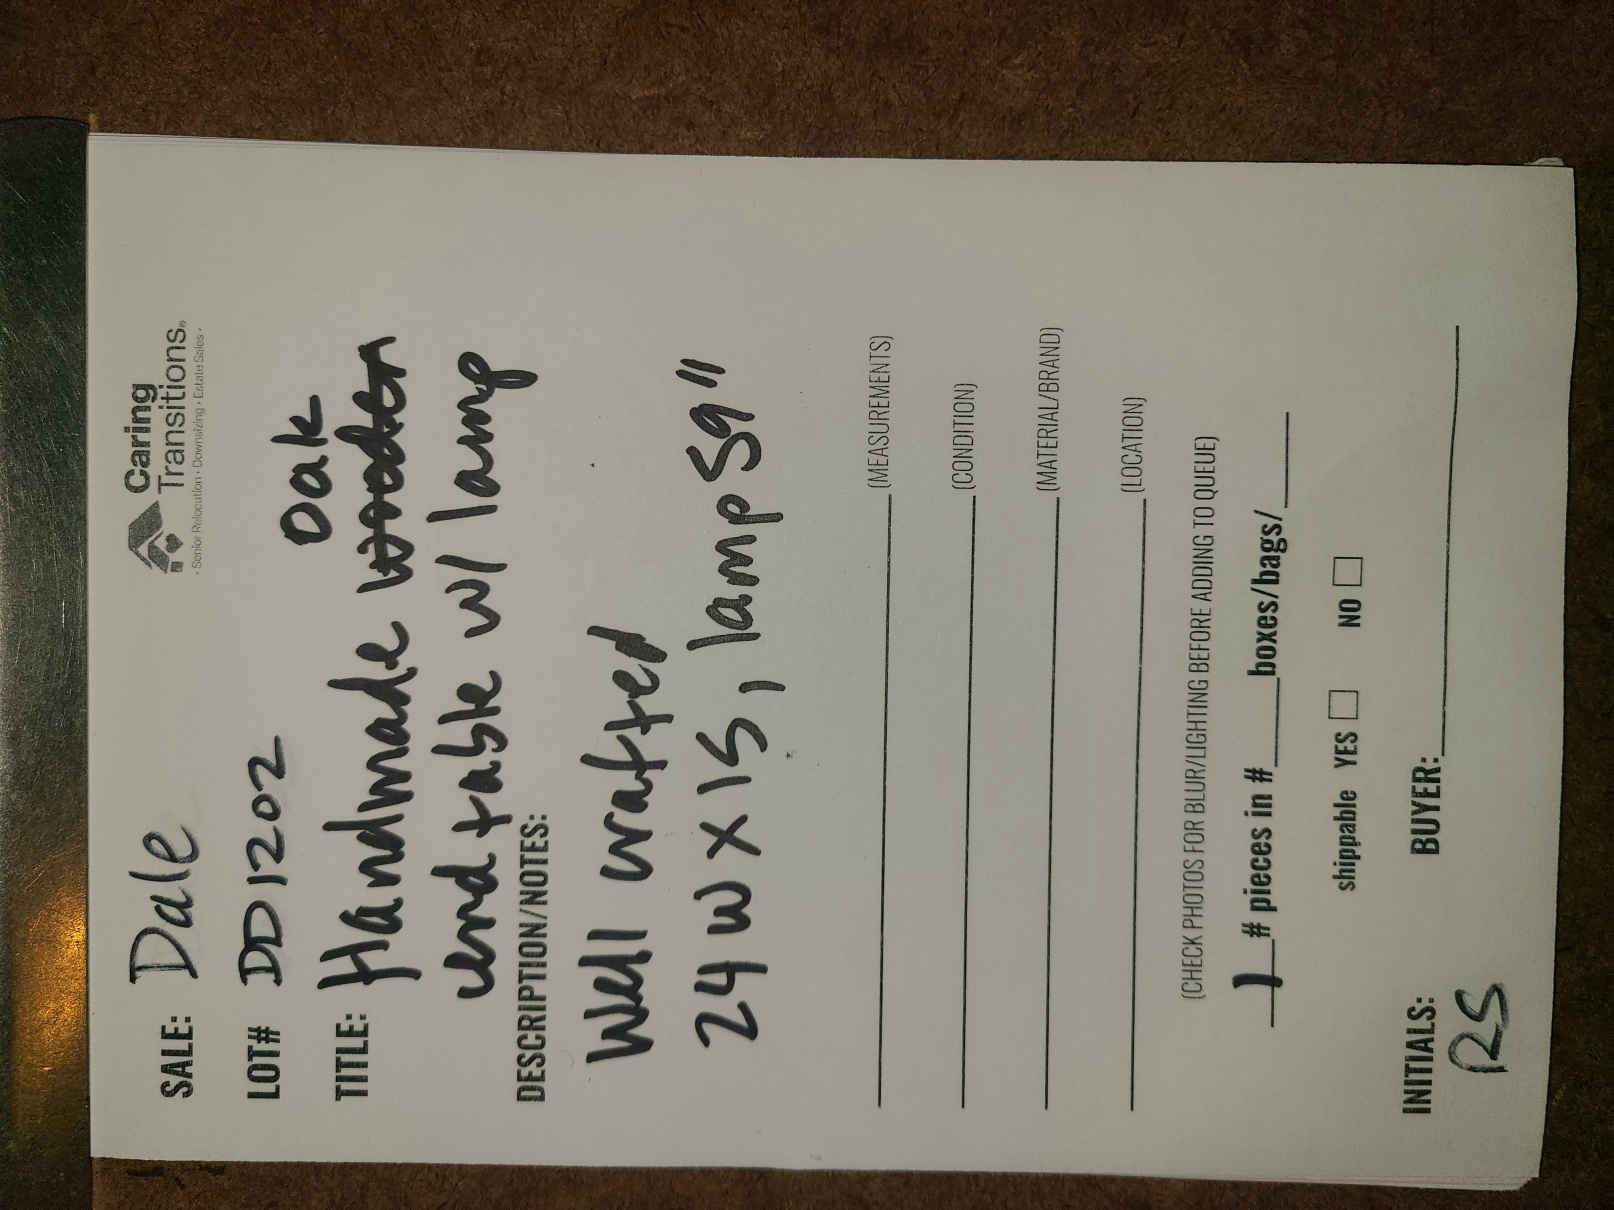 Caring
Transitions®
· Senior Relocation · Downsizing · Estate Sales ·
SALE: Dale
LOT# DD1202
Oak
TITLE: Handmade wooden
end table w/ lamp
DESCRIPTION/NOTES:
Well crafted
24 W X 15, lamp 59"
(MEASUREMENTS)
(CONDITION)
(MATERIAL/BRAND)
(LOCATION)
(CHECK PHOTOS FOR BLUR/LIGHTING BEFORE ADDING TO QUEUE)
1 # pieces in #____boxes/bags/____
shippable YES □ NO □
INITIALS: BUYER:____
RS